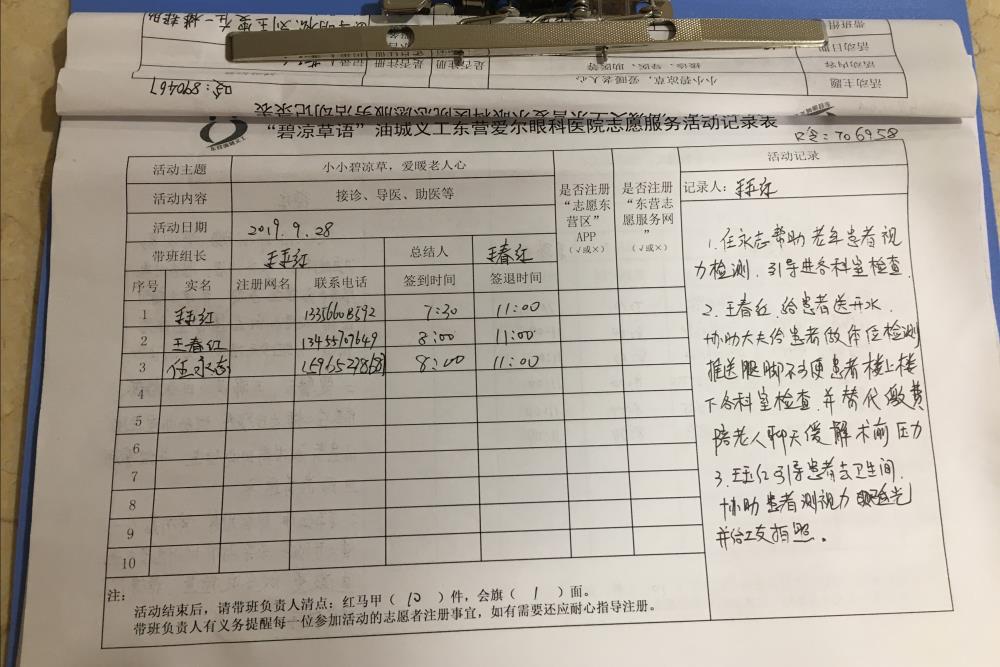 口令：890467
活动主题
小小碧凉草，爱暖老人心
活动内容
接诊、导医、助医等
活动日期
带班组
是否注册
是否注册
“碧凉草语”油城义工东营爱尔眼科医院志愿服务活动记录表
口令：706958
活动主题 小小碧凉草，爱暖老人心 是否注册“志愿东营区”APP（√或×） 是否注册“东营志愿服务网”（√或×） 活动记录
活动内容 接诊、导医、助医等 记录人：王玉红
活动日期 2019.9.28
带班组长 王玉红 总结人 王春红
序号 实名 注册网名 联系电话 签到时间 签退时间
1 王玉红 13356608592 7:30 11:00
2 王春红 13455707649 8:00 11:00
3 任永志 8:00 11:00
4
5
6
7
8
9
10
1.任永志帮助老年患者视
力检测．引导进各科室检查
2.王春红给患者送开水．
协助大夫给患者做体位检测
推送腿脚不方便患者楼上楼
下各科室检查．并替代缴费
陪老人聊天缓解术前压力
3.王玉红引导患者去卫生间．
协助患者测视力验光
并给义工拍照。
注：
活动结束后，请带班负责人清点：红马甲（10）件，会旗（1）面。
带班负责人有义务提醒每一位参加活动的志愿者注册事宜，如有需要还应耐心指导注册。